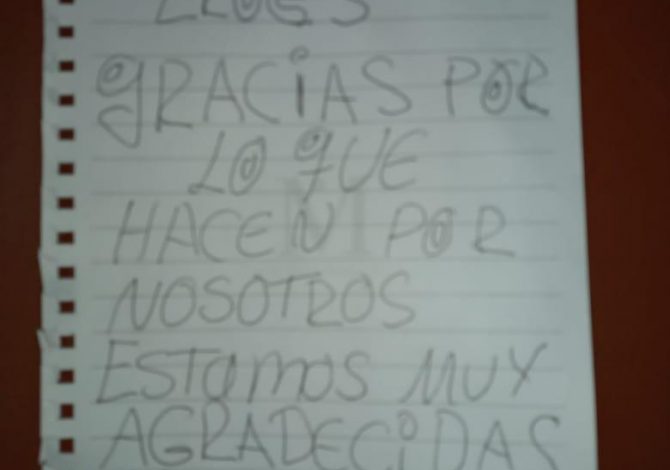 GRACiAS POR
LO qUE
HACEN POR
NOSOTROS
ESTamos MUY
AGRADECiDAS